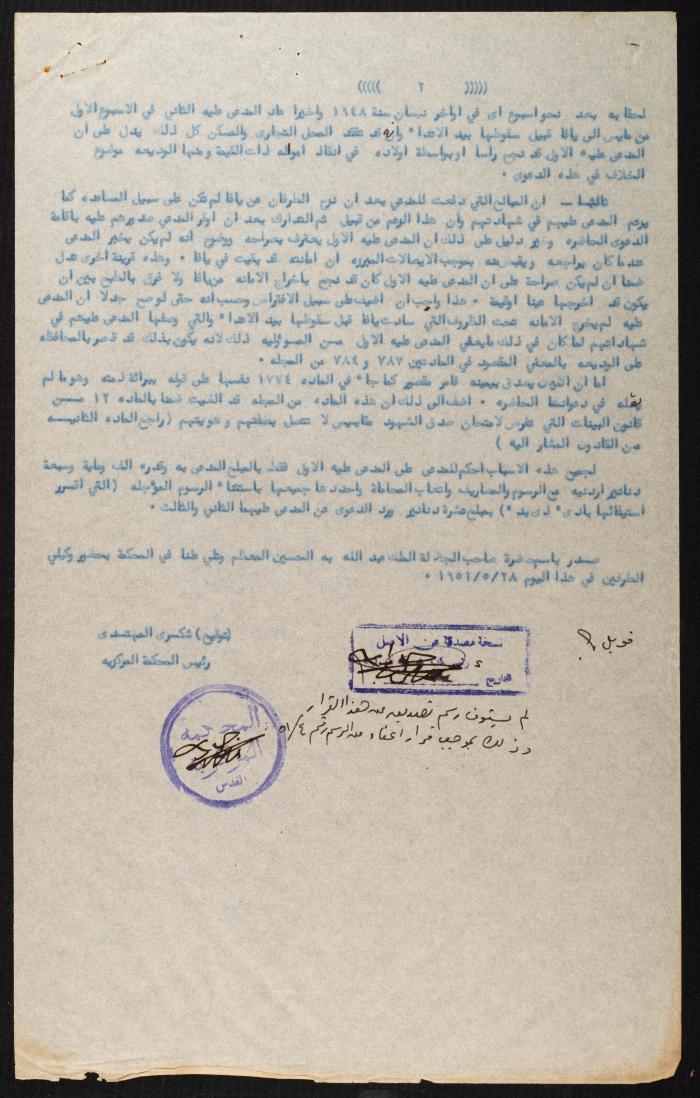 ((((( ٢ )))))
لحقا به بعد نحو اسبوع اى في اواخر نيسان سنة ١٩٤٨ واخيرا عاد المدعى عليه الثاني في الاسبوع الاول
من مايس الى يافا قبيل سقوطها بيد الاعداء وانه قد تفقد المحل التجارى والمسكن كل ذلك يدل على ان
المدعى عليه الاول قد نجح رأسا او بواسطة اولاده في انقاذ امواله ذات القيمة ومنها الوديعه موضوع
الخلاف في هذه الدعوى .
ثالثا - ان المبالغ التي دفعت للمدعي بعد ان نزح الطرفان عن يافا لم تكن على سبيل المساعده كما
يزعم المدعى عليهم في شهادتهم وأن هذا الزعم من قبيل التدارك بعد ان اوغر المدعي صدورهم عليه باقامة
الدعوى الحاضره وخير دليل على ذلك ان المدعى عليه الاول يعترف بصراحه ووضوح أنه لم يكن يخبر المدعى
عندما كان يراجعه ويقبض منه بموجب الايصالات المبرزه ان امانته قد بقيت في يافا . وهذه قرينة اخرى تدل
ضمنا ان لم يكن صراحة على ان المدعى عليه الاول كان قد نجح باخراج الامانه من يافا ولا فرق بالطبع بين ان
يكون قد اخرجها عينا او قيمة . هذا واجب ان اضيف على سبيل الافتراض وحسب انه حتى لو صح جدلا ان المدعى
عليه لم يخرج الامانه تحت الظروف التي سادت يافا قبل سقوطها بيد الاعداء والتي وصفها المدعى عليهم في
شهاداتهم لما كان في ذلك ما يعفي المدعى عليه الاول من المسؤوليه ذلك لانه يكون بذلك قد قصر بالمحافظه
على الوديعه بالمعنى المقصود في المادتين ٧٨٧ و ٧٨٤ من المجله .
اما ان الامين يصدق بيمينه فامر مقصور كما جاء في الماده ١٧٧٤ نفسها على قوله ببرائة ذمته وهو ما لم
يقله في دعوانا الحاضره . اضف الى ذلك ان هذه الماده من المجله قد الغيت ضمنا بالماده ١٢ من
قانون البينات التي تفرض لامتحان صدق الشهود مقاييس لا تتصل بصفتهم وهويتهم (راجع الماده الثانيه
من القانون المشار اليه )
لجميع هذه الاسباب احكم للمدعى على المدعى عليه الاول فقط بالمبلغ المدعى به وقدره الف وماية وسبعة
دنانير اردنيه مع الرسوم والمصاريف واتعاب المحاماة واحددها جميعها باستثناء الرسوم المؤجله (التي اتقرر
استيفائها بادىء ذى بدء) بمبلغ عشرة دنانير ورد الدعوى عن المدعى عليهما الثاني والثالث .
صدر باسم حضرة صاحب الجلالة الملك عبد الله به الحسين المعظم وتلي علنا في المحكمة بحضور وكيلي
الطرفين في هذا اليوم ١٩٥١/٥/٢٨ .
(توقيع) شكرى المهتدى
رئيس المحكمة المركزيه
قوبل
نسخة مصدقة عن الاصل
التاريخ
لم يستوف رسم تصديق عن هذا القرار
وذلك بموجب قرار اعفاء من الرسم رقم ٥١/٤
المحكمة
المركزية
القدس